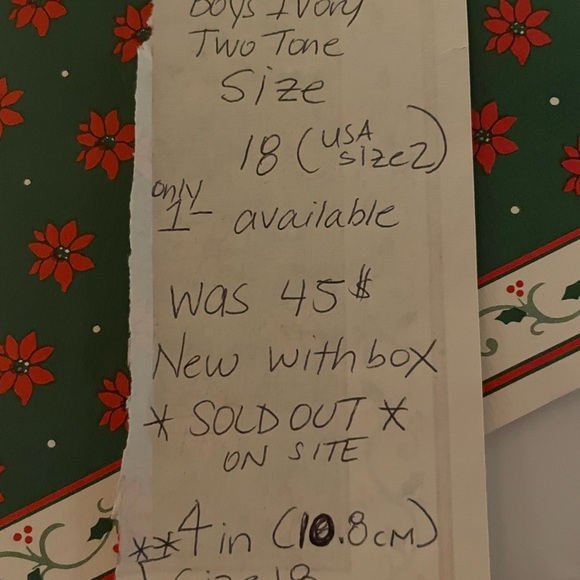 Boys Ivory
Two Tone
Size
18 (USA size 2)
only 1- available
was 45$
New with box
* SOLD OUT *
ON SITE
**4 in (10.8cm)
Size 18